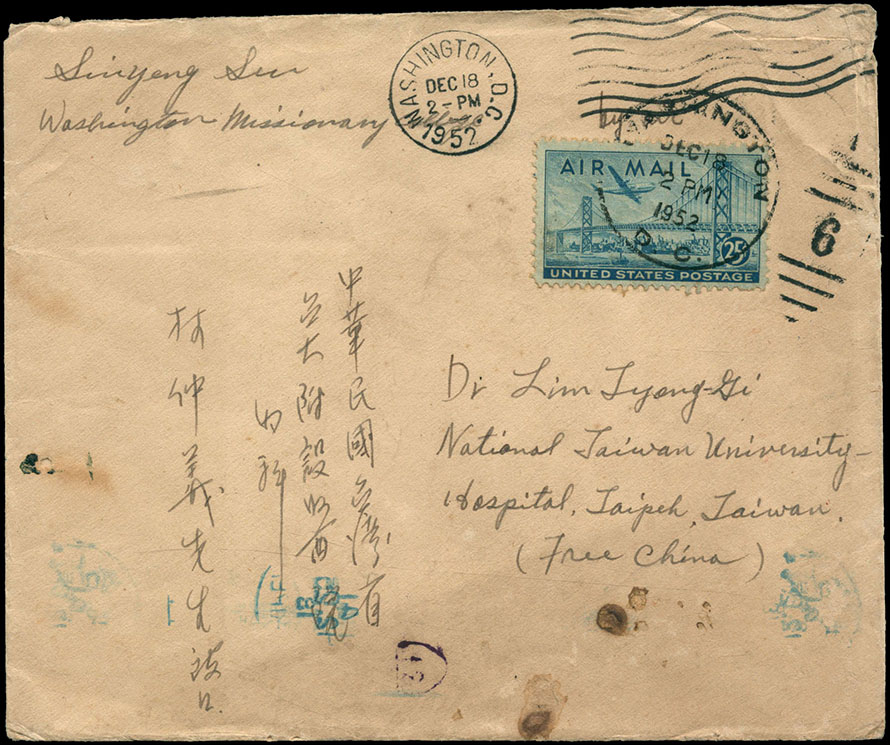 Sinyeng Sun
Washington Missionary College
WASHINGTON, D.C.
DEC 18
2-PM
1952
WASHINGTON
DEC 18
2 PM
1952
D. C.
AIR MAIL
25¢
UNITED STATES POSTAGE
6
Dr Lim Tyong-Gi
National Taiwan University
Hospital, Taipeh, Taiwan.
(Free China)
中華民國台灣省
台大附設醫院
內科
林仲義先生